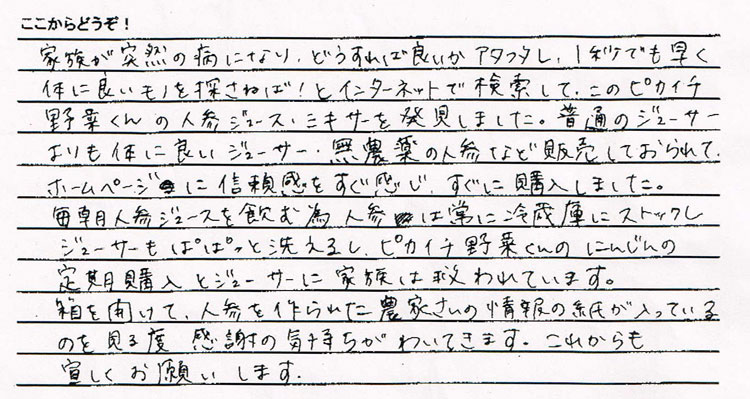 ここからどうぞ！
家族が突然の病になり、どうすれば良いかアタフタし、1秒でも早く
体に良いモノを探さねば！とインターネットで検索して、このピカイチ
野菜くんの人参ジュース・ミキサーを発見しました。普通のジューサー
よりも体に良いジューサー・無農薬の人参など販売しておられて、
ホームページに信頼感をすぐ感じ、すぐに購入しました。
毎朝人参ジュースを飲む為人参は常に冷蔵庫にストックし
ジューサーもぱぱっと洗えるし、ピカイチ野菜くんのにんじんの
定期購入とジューサーに家族は救われています。
箱を開けて、人参を作られた農家さんの情報の紙が入っている
のを見る度感謝の気持ちがわいてきます。これからも
宜しくお願いします.